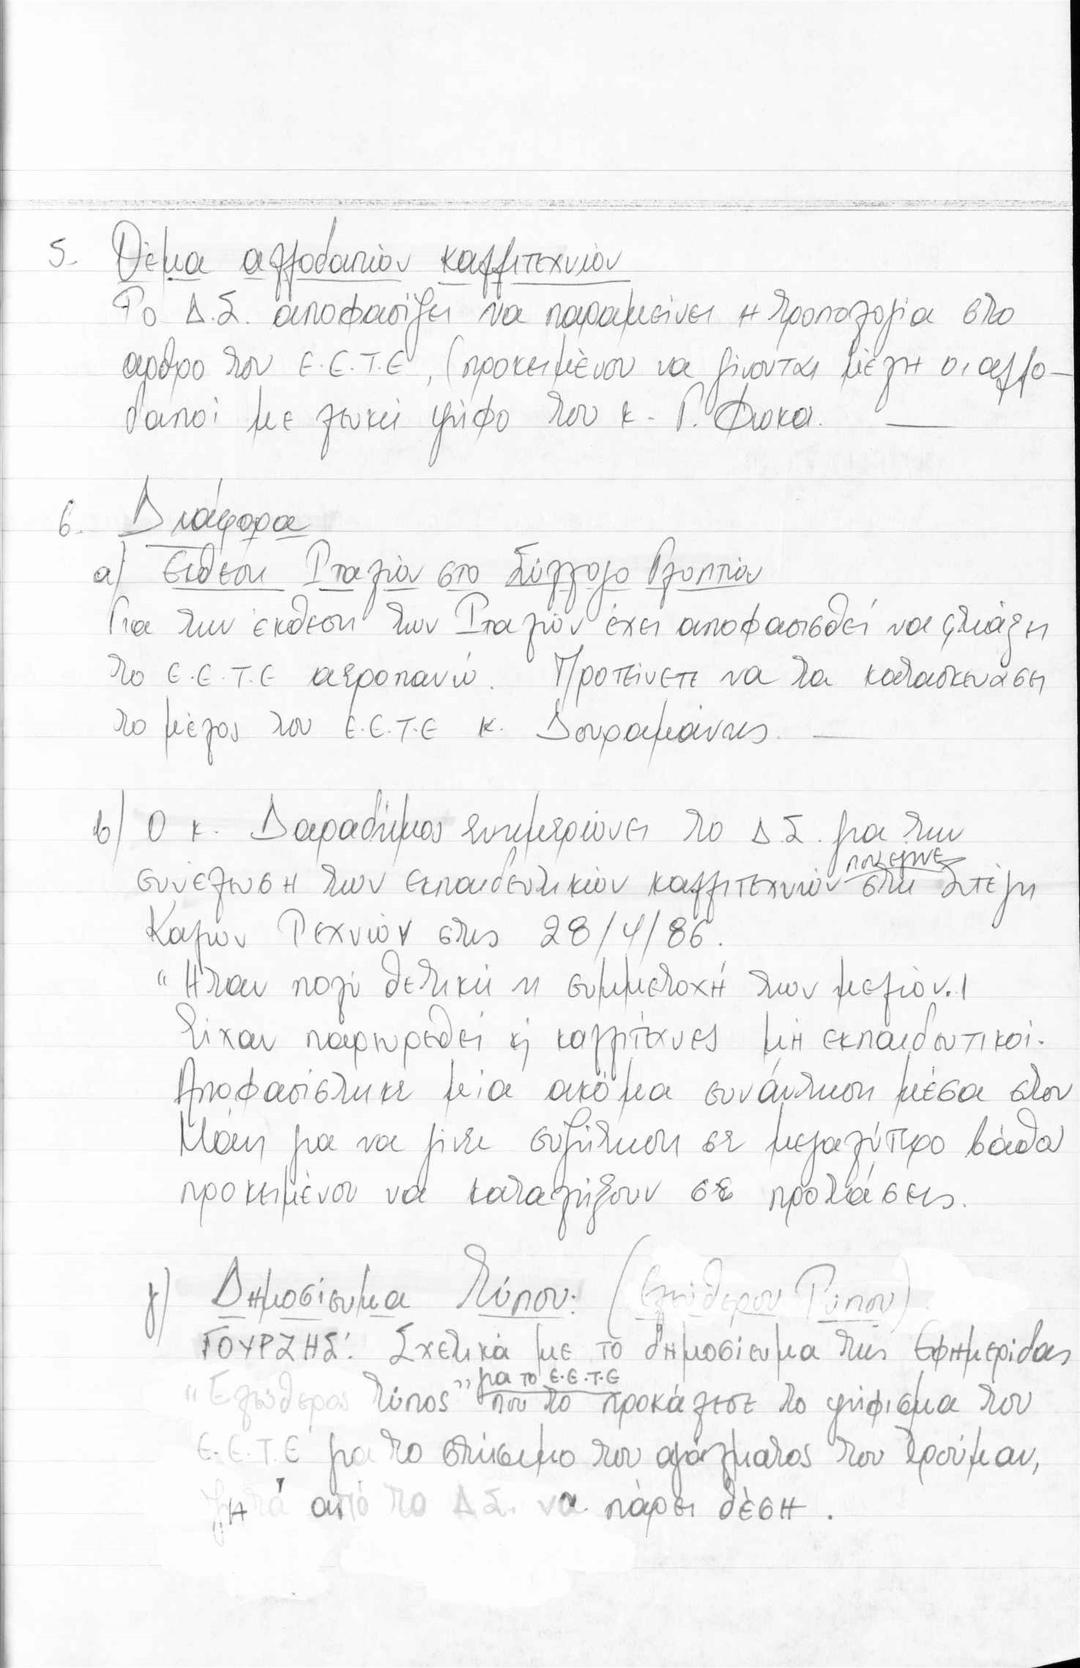 5. Θέμα αλλοδαπών καλλιτεχνών
Το Δ.Σ. αποφασίζει να παραμείνει η τροπολογία στο
αρθρο του Ε.Ε.Τ.Ε, (προκειμένου να γίνονται μέλη οι αλλο-
δαποί με λευκή ψήφο του κ. Γ. Φωκα. —
6. Διάφορα
α) Εκθεση Ιταλών στο Σύλλογο Γλυπτών
Για την έκθεση των Ιταλών έχει αποφασισθεί να φτιάξει
το Ε.Ε.Τ.Ε αεροπανώ. Προτείνετε να τα κατασκευάσει
το μέλος του Ε.Ε.Τ.Ε κ. Δουραμάνης. —
β) Ο κ. Δαραδήμος ενημερώνει το Δ.Σ. για την
που εγινε
συνέλευση των εκπαιδευτικών καλλιτεχνών στη Στέγη
Καλών Τεχνών στις 28/4/86.
"Ηταν πολύ θετική η συμμετοχή των μελών.!
Είχαν παρευρεθεί κ καλλιτέχνες μη εκπαιδευτικοί.
Αποφασίστηκε μία ακόμα συνάντηση μέσα στον
Μάη για να γίνει συζήτηση σε μεγαλύτερο βάθος
προκειμένου να καταλήξουν σε προτάσεις.
γ) Δημοσίευμα τύπου: (Ελεύθερου Τύπου)
ΓΟΥΡΖΗΣ: Σχετικά με το δημοσίευμα της Εφημερίδας
για το Ε.Ε.Τ.Ε
"Ελεύθερος τύπος" που το προκάλεσε το ψήφισμα του
Ε.Ε.Τ.Ε για το στήσιμο του αγάλματος του Τρούμαν,
ζητά από το Δ.Σ. να πάρει θέση.